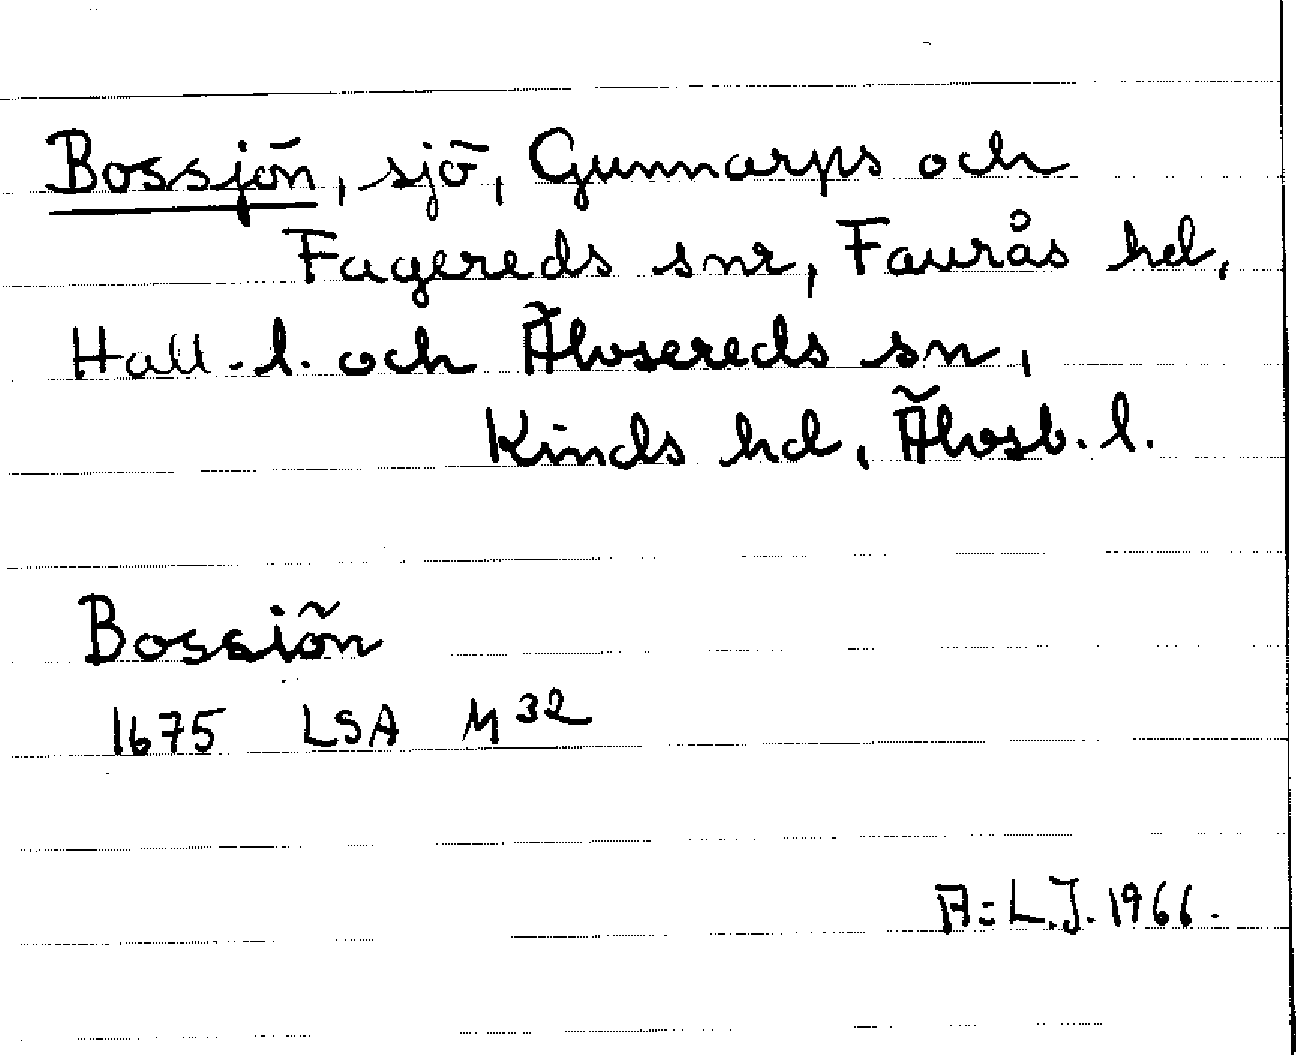 Bossjön, sjö, Gunnarps och
Fagereds snr, Faurås hd,
Hall. l. och Älvsereds sn,
Kinds hd, Älvsb. l.
Bossiön
1675 LSA M 32
A: L.J. 1966.